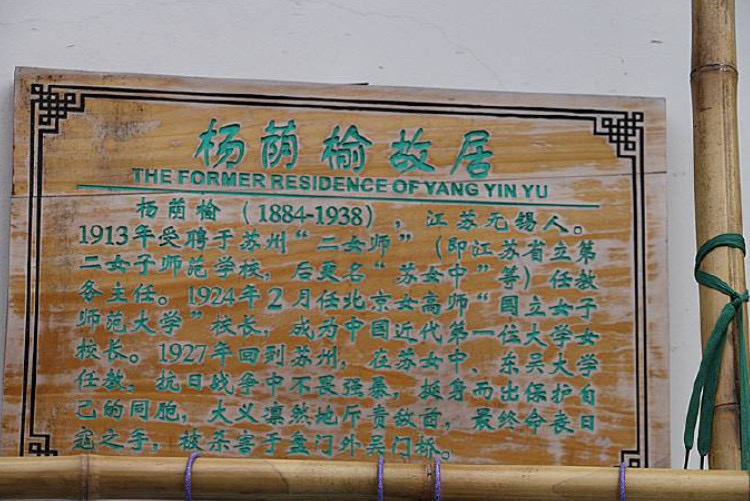 杨荫榆故居
THE FORMER RESIDENCE OF YANG YIN YU
杨荫榆（1884-1938），江苏无锡人。
1913年受聘于苏州“二女师”（即江苏省立第
二女子师范学校，后更名“苏女中”等）任教
务主任。1924年2月任北京女高师“国立女子
师范大学”校长，成为中国近代第一位大学女
校长。1927年回到苏州，在苏女中、东吴大学
任教，抗日战争中不畏强暴，挺身而出保护自
己的同胞，大义凛然地斥责敌酋，最终命丧日
寇之手，被杀害于盘门外吴门桥。